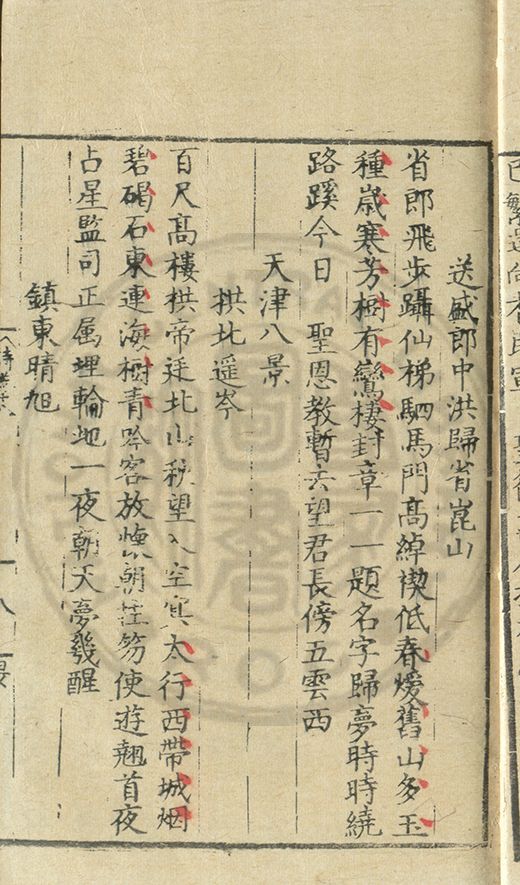 送盛郎中洪歸省崑山
省郎飛步躡仙梯駟馬門高綽禊低春煖舊山多玉
種歲寒芳樹有鸞棲封章一一題名字歸夢時時繞
路蹊今日 聖恩教暫去望君長傍五雲西
天津八景
拱北遥岑
百尺高樓拱帝廷北山秋望入空冥太行西帶城烟
碧碣石東連海樹青吟客放懷朝拄笏使遊翹首夜
占星監司正属埋輪地一夜朝天夢幾醒
鎮東晴旭